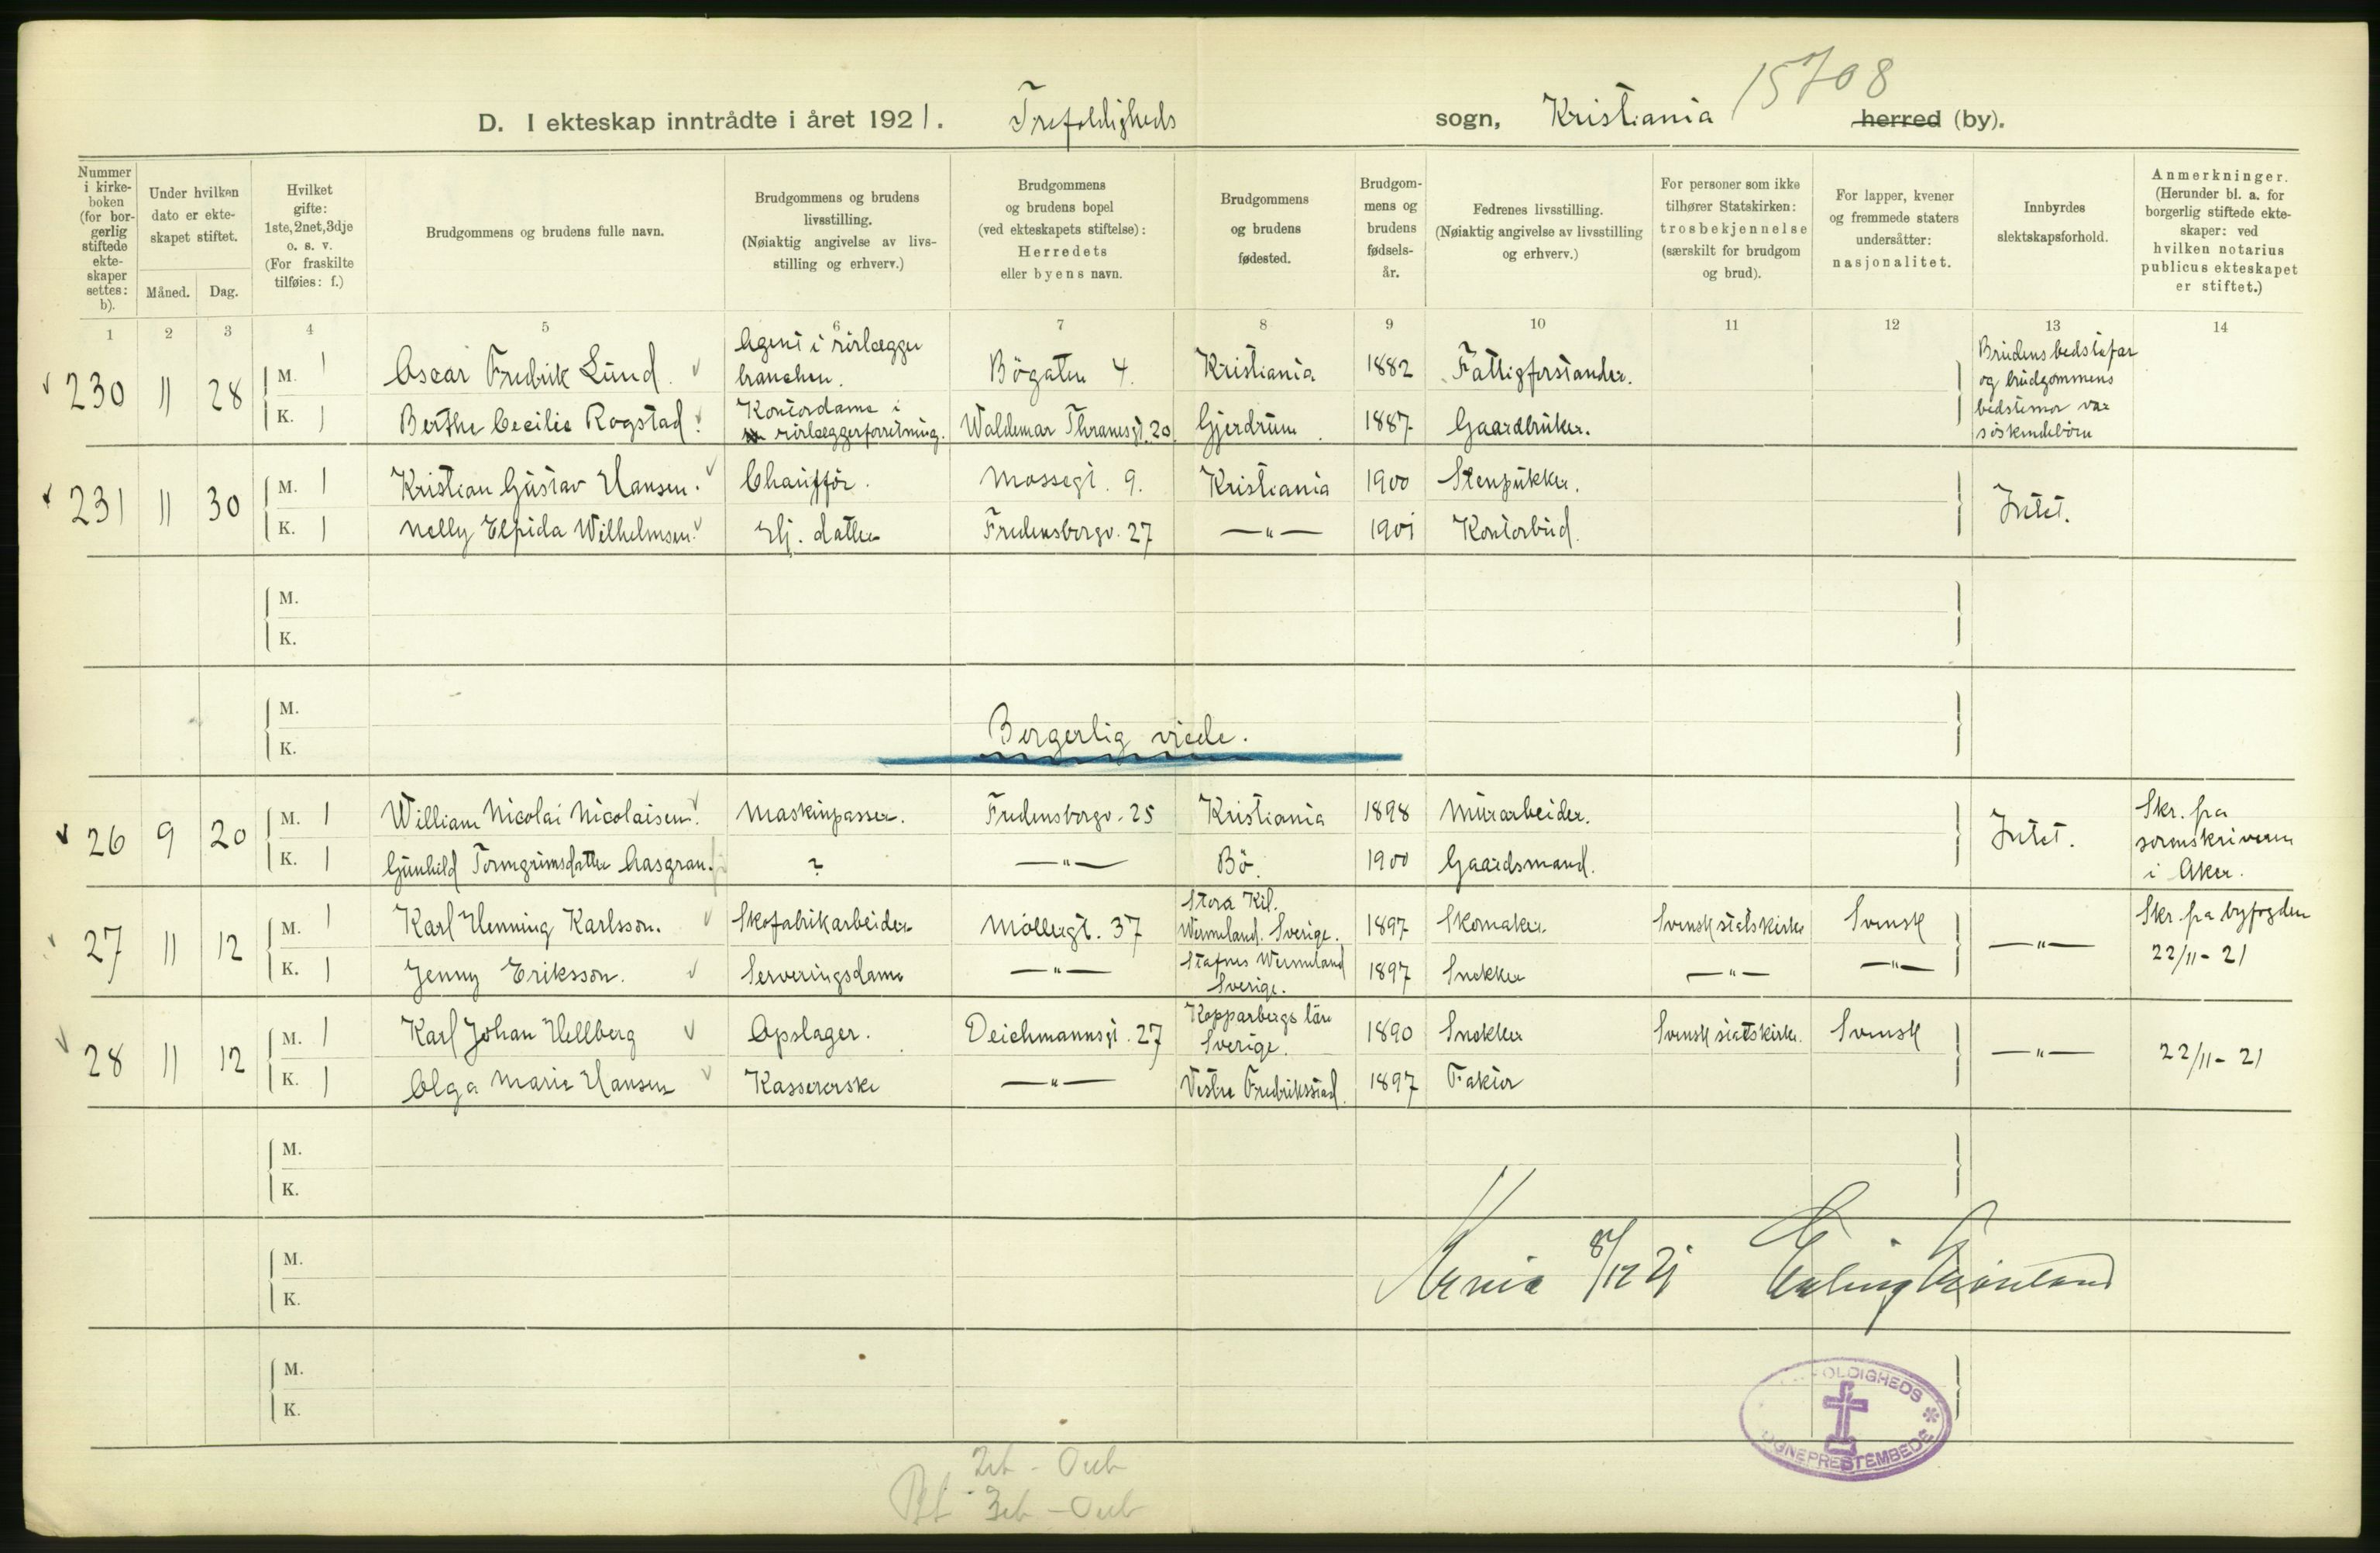 15708
D. I ekteskap inntrådte i året 1921. Trefoldigheds sogn, Kristiania herred (by).
Nummer i kirke-boken (for bor-gerlig stiftede ekte-skaper settes: b).
Under hvilken dato er ekte-skapet stiftet.
Måned. Dag.
Hvilket gifte: 1ste, 2net, 3dje o. s. v. (For fraskilte tilføies: f.)
Brudgommens og brudens fulle navn.
Brudgommens og brudens livsstilling. (Nøiaktig angivelse av livs-stilling og erhverv.)
Brudgommens og brudens bopel (ved ekteskapets stiftelse): Herredets eller byens navn.
Brudgommens og brudens fødested.
Brudgom-mens og brudens fødsels-år.
Fedrenes livsstilling. (Nøiaktig angivelse av livsstilling og erhverv.)
For personer som ikke tilhører Statskirken: trosbekjennelse (særskilt for brudgom og brud).
For lapper, kvener og fremmede staters undersåtter: nasjonalitet.
Innbyrdes slektskapsforhold.
Anmerkninger. (Herunder bl. a. for borgerlig stiftede ekte-skaper: ved hvilken notarius publicus ekteskapet er stiftet.)
1 2 3 4 5 6 7 8 9 10 11 12 13 14
230 11 28
M. 1 Oscar Fredrik Lund. Agent i rörlægger branchen. Bögaten 4. Kristiania 1882 Fattigforstander.
K. 1 Berthe Cecilie Rogstad. Kontordame i rörlæggerforretning. Waldemar Thranesgt. 20. Gjerdrum. 1887 Gaardbruker.
Brudens bedstefar
og brudgommens
bedstemor var
söskendebörn
231 11 30
M. 1 Kristian Gustav Hansen. Chaufför. Mossegt. 9. Kristiania 1900 Stenpukker.
K. 1 Nelly Elpida Wilhelmsen. Hj. datter Fredensborgv. 27 —"— 1901 Kontorbud.
Intet.
M.
K.
M.
K.
Borgerlig viede.
26 9 20
M. 1 William Nicolai Nicolaisen. Maskinpasser. Fredensborgv. 25 Kristiania 1898 Murarbeider.
K. 1 Gunhild Tormgrimsdatter Aasgran. ? —"— Bö. 1900 Gaardsmand.
Intet.
Skr. fra
sorenskriveren
i Aker.
27 11 12
M. 1 Karl Henning Karlsson. Skofabrikarbeider Möllergt. 37 Stora Kil. Wermland. Sverige. 1897 Skomaker. Svensk statskirke Svensk
K. 1 Jenny Eriksson. Serveringsdame —"— Stafnes Wermland Sverige. 1897 Snekker —"— —"—
—"—
Skr. fra byfogden
22/11-21
28 11 12
M. 1 Karl Johan Hellberg Opslager. Deichmannsgt. 27 Kopparbergs län Sverige. 1890 Snekker Svensk statskirke. Svensk
K. 1 Olga Marie Hansen Kassererske —"— Vestre Fredrikstad. 1897 Faktor
—"—
22/11-21
M.
K.
M.
K.
Krnia 8/12 21 Erling Grönland
M.
K.
OLDIGHEDS
OGNEPRESTEMBEDE